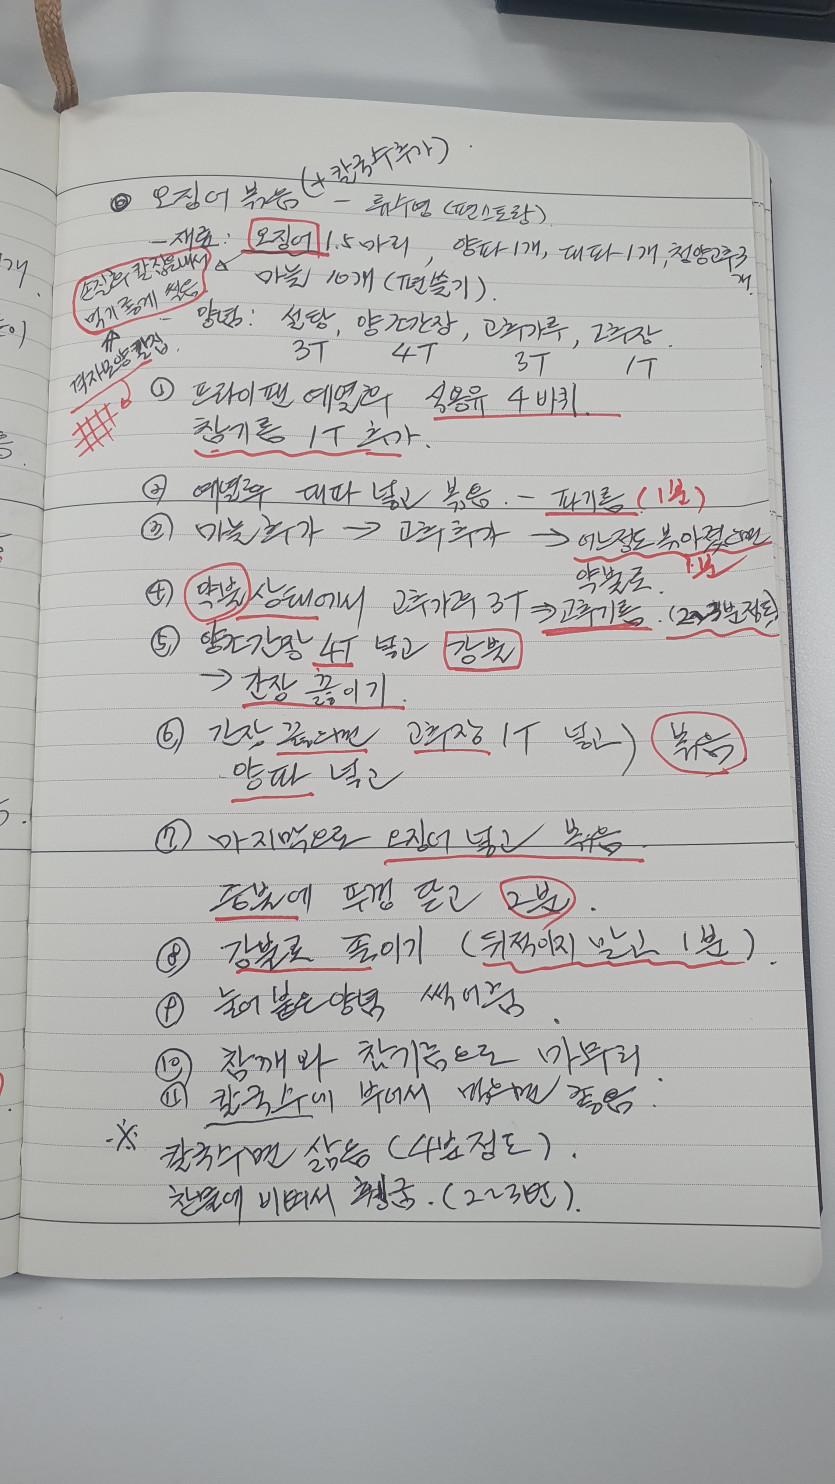 ◎ 오징어 볶음 (+칼국수추가) - 류수영 (편스토랑)
- 재료: 오징어 1.5마리, 양파1개, 대파1개, 청양고추3개
마늘 10개 (편썰기).
손질후 칼집을내서
먹기좋게 썰음
격자모양칼집
- 양념: 설탕, 양조간장, 고추가루, 고추장.
3T 4T 3T 1T
① 프라이팬 예열후 식용유 4바퀴.
참기름 1T 추가.
② 예열후 대파 넣고 볶음. - 파기름 (1분)
③ 마늘추가 → 고추추가 → 어느정도 볶아졌다면
약불로. 1분
④ 약불상태에서 고추가루 3T → 고추기름. (2~3분정도)
⑤ 양조간장 4T 넣고 강불
→ 간장 끓이기.
⑥ 간장 끓는다면 고추장 1T 넣고) 볶음
양파 넣고
⑦ 마지막으로 오징어 넣고 볶음.
중불에 뚜껑 닫고 2분.
⑧ 강불로 졸이기 (뒤적이지 말고 1분).
⑨ 눌어붙은양념 썩어줌.
⑩ 참깨와 참기름으로 마무리
⑪ 칼국수에 부어서 먹으면 좋음.
※ 칼국수면 삶음 (4분정도).
찬물에 비벼서 헹굼. (2~3번).